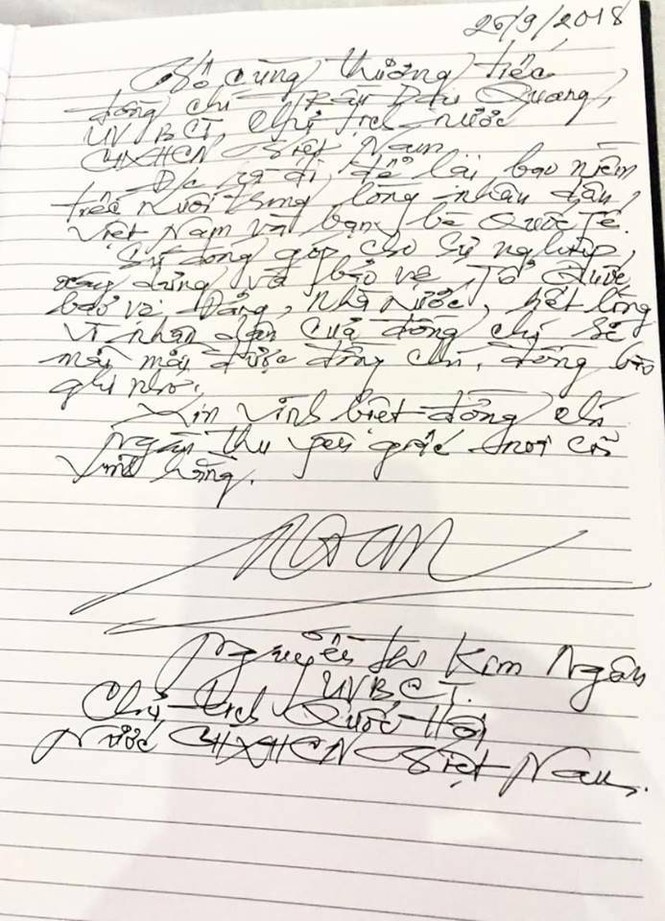 26/9/2018
Vô cùng thương tiếc
đồng chí Trần Đại Quang,
UV BCT, Chủ tịch nước
CHXHCN Việt Nam
Đ/c ra đi, để lại bao niềm
tiếc nuối trong lòng nhân dân
Việt Nam và bạn bè Quốc tế.
Sự đóng góp cho sự nghiệp
xây dựng và bảo vệ Tổ Quốc
bảo vệ Đảng, Nhà nước, hết lòng
vì nhân dân của đồng chí sẽ
mãi mãi được đồng chí, đồng bào
ghi nhớ.
Xin vĩnh biệt đồng chí
Ngàn thu yên giấc nơi cõi
vĩnh hằng.
Ngân
Nguyễn Thị Kim Ngân
UVBCT.
Chủ tịch Quốc Hội
Nước CHXHCN Việt Nam.